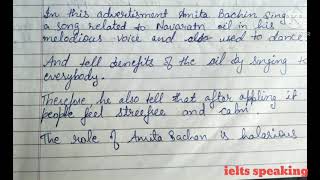 In this advertisment Amita Bachin sing
a song related to Navaratn oil in his
melodious voice and also used to dance
And tell benefits of the oil by singing to
everybody.
Therefore, he also tell that after appling it
people feel streefree and calm
The role of Amita Bachan is halarious
ielts speaking